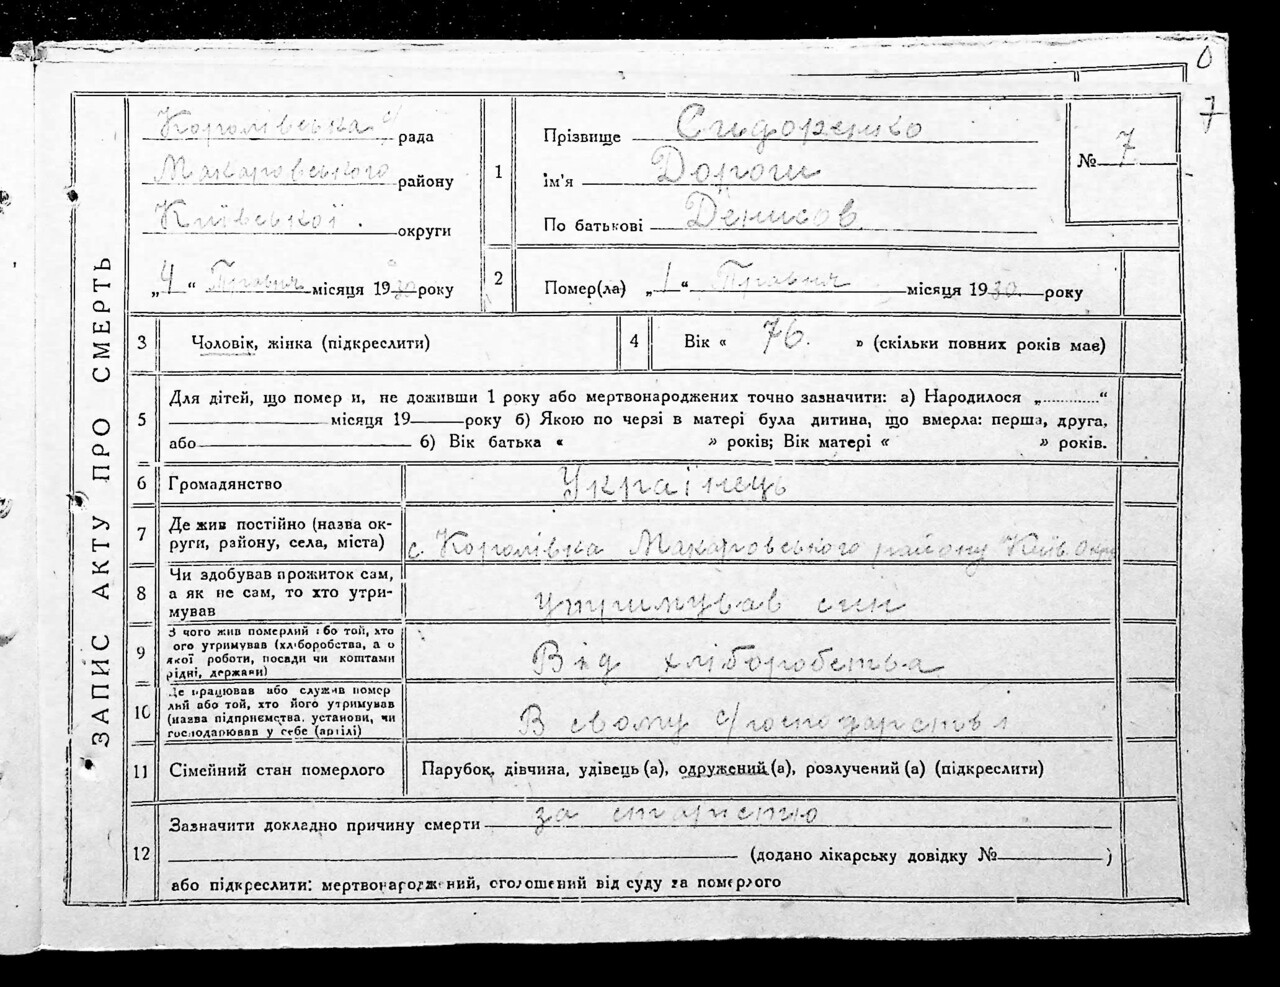 0
7
ЗАПИС АКТУ ПРО СМЕРТЬ
Королівська рада
Макаровського району
Київської округи
„4“ Травня місяця 1930 року
1
Прізвище Сидоренко
ім'я Дороги
По батькові Денисов
№ 7
2
Помер(ла) „1“ Травня місяця 1930 року
3
Чоловік, жінка (підкреслити)
4
Вік « 76. » (скільки повних років має)
5
Для дітей, що помер и, не доживши 1 року або мертвонароджених точно зазначити: а) Народилося „...........“
місяця 19 року б) Якою по черзі в матері була дитина, що вмерла: перша, друга,
або б) Вік батька « » років; Вік матері « » років.
6
Громадянство
Українець
7
Де жив постійно (назва ок-
руги, району, села, міста)
с. Королівка Макаровського району Київ. Окр
8
Чи здобував прожиток сам,
а як не сам, то хто утри-
мував
утримував син
9
З чого жив померлий або той, хто
ого утримував (хліборобства, а о
якої роботи, посади чи коштами
рідні, держави)
Від хліборобства
10
Де працював або служив помер
лий або той, хто його утримував
(назва підприємства, установи, чи
господарював у себе (артілі)
В свому с/господарстві
11
Сімейний стан померлого
Парубок, дівчина, удівець(а), одружений(а), розлучений(а) (підкреслити)
12
Зазначити докладно причину смерти за старистю
(додано лікарську довідку № )
або підкреслити: мертвонароджений, оголошений від суду за померлого